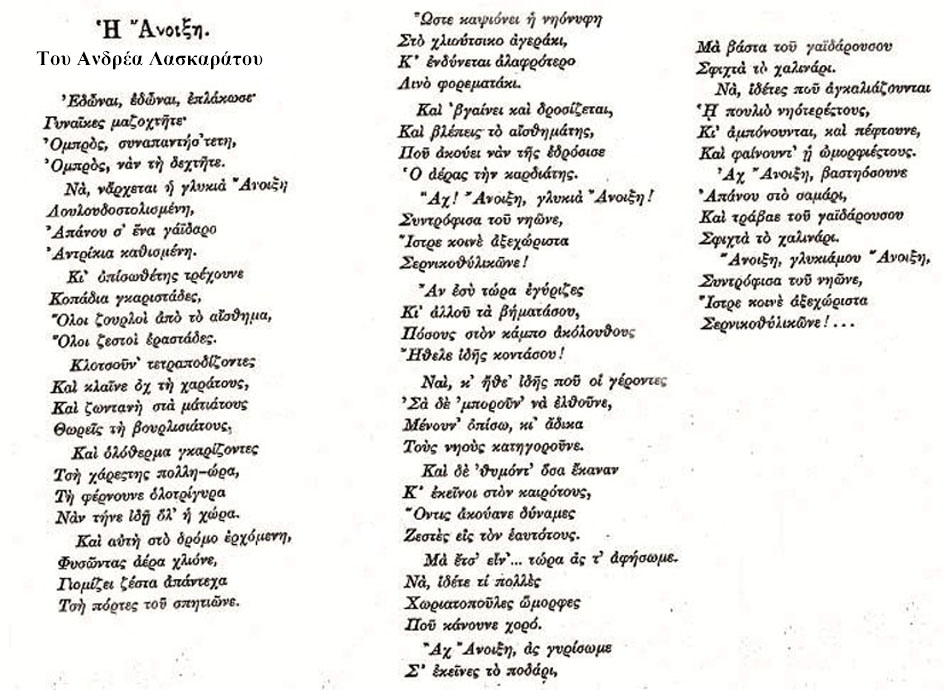 Ἡ Ἄνοιξη.
Του Ανδρέα Λασκαράτου
Ἐδῶναι, ἐδῶναι, ἐπλάκωσε·
Γυναῖκες μαζοχτῆτε·
Ὀμπρὸς, συναπαντήσ'τετη,
Ὀμπρὸς, νὰν τὴ δεχτῆτε.
Νὰ, νἄρχεται ἡ γλυκιὰ Ἄνοιξη
Λουλουδοστολισμένη,
Ἀπάνου σ' ἕνα γάϊδαρο
Ἀντρίκια καθισμένη.
Κι' ὀπίσωθέτης τρέχουνε
Κοπάδια γκαριστάδες,
Ὅλοι ζουρλοὶ ἀπὸ τὸ αἴσθημα,
Ὅλοι ζεστοὶ ἐραστάδες.
Κλοτσοῦν' τετραποδίζοντες
Καὶ κλαῖνε ὀχ τὴ χαράτους,
Καὶ ζωντανὴ στὰ μάτιάτους
Θωρεῖς τὴ βουρλισιάτους,
Καὶ ὁλόθερμα γκαρίζοντες
Τσὴ χάρεστης πολλη-ώρα,
Τὴ φέρνουνε ὁλοτρίγυρα
Νὰν τήνε ἰδῇ ὅλ' ἡ χώρα.
Καὶ αὐτὴ στὸ δρόμο ἐρχόμενη,
Φυσῶντας ἀέρα χλιόνε,
Γιομίζει ζέστα ἀπάντεχα
Τσὴ πόρτες τοῦ σπητιῶνε.
Ὥστε καψιόνει ἡ νηόνυφη
Στὸ χλιούτσικο ἀγεράκι,
Κ' ἐνδύνεται ἀλαφρότερο
Λινὸ φορεματάκι.
Καὶ 'βγαίνει καὶ δροσίζεται,
Καὶ βλέπεις τὸ αἰσθημάτης,
Ποῦ ἀκούει νὰν τῆς ἐδρόσισε
Ὁ ἀέρας τὴν καρδιάτης.
Ἄχ! Ἄνοιξη, γλυκιὰ Ἄνοιξη!
Συντρόφισα τοῦ νηῶνε,
Ἴστρε κοινὲ ἀξεχώριστα
Σερνικοθύλικῶνε!
Ἂν ἐσὺ τώρα ἐγύριζες
Κι' ἀλλοῦ τὰ βήματάσου,
Πόσους στὸν κάμπο ἀκόλουθους
Ἤθελε ἰδῇς κοντάσου!
Ναὶ, κ' ἤθε' ἰδῇς ποῦ οἱ γέροντες
Σὰ δὲ 'μποροῦν' νὰ ἐλθοῦνε,
Μένουν' ὀπίσω, κι' ἄδικα
Τοὺς νηοὺς κατηγοροῦνε.
Καὶ δὲ 'θυμόντ' ὅσα ἔκαναν
Κ' ἐκεῖνοι στὸν καιρότους,
Ὄντις ἀκούανε δύναμες
Ζεστὲς εἰς τὸν ἑαυτότους.
Μὰ ἔτσ' εἶν'... τώρα ἂς τ' ἀφήσωμε.
Νὰ, ἰδέτε τί πολλὲς
Χωριατοποῦλες ὤμορφες
Ποῦ κάνουνε χορό.
Ἂχ Ἄνοιξη, ἂς γυρίσωμε
Σ' ἐκεῖνες τὸ ποδάρι,
Μὰ βάστα τοῦ γαϊδάρουσου
Σφιχτὰ τὸ χαλινάρι.
Νὰ, ἰδέτες ποῦ ἀγκαλιάζουνται
Ἡ πουλιὸ νηότερέστους,
Κι' ἀμπόνουνται, καὶ πέφτουνε,
Καὶ φαίνουντ' ᾑ ὠμορφιέστους.
Ἂχ Ἄνοιξη, βαστηόσουνε
Ἀπάνου στὸ σαμάρι,
Καὶ τράβαε τοῦ γαϊδάρουσου
Σφιχτὰ τὸ χαλινάρι.
Ἄνοιξη, γλυκιάμου Ἄνοιξη,
Συντρόφισα τοῦ νηῶνε,
Ἴστρε κοινὲ ἀξεχώριστα
Σερνικοθύλικῶνε!...